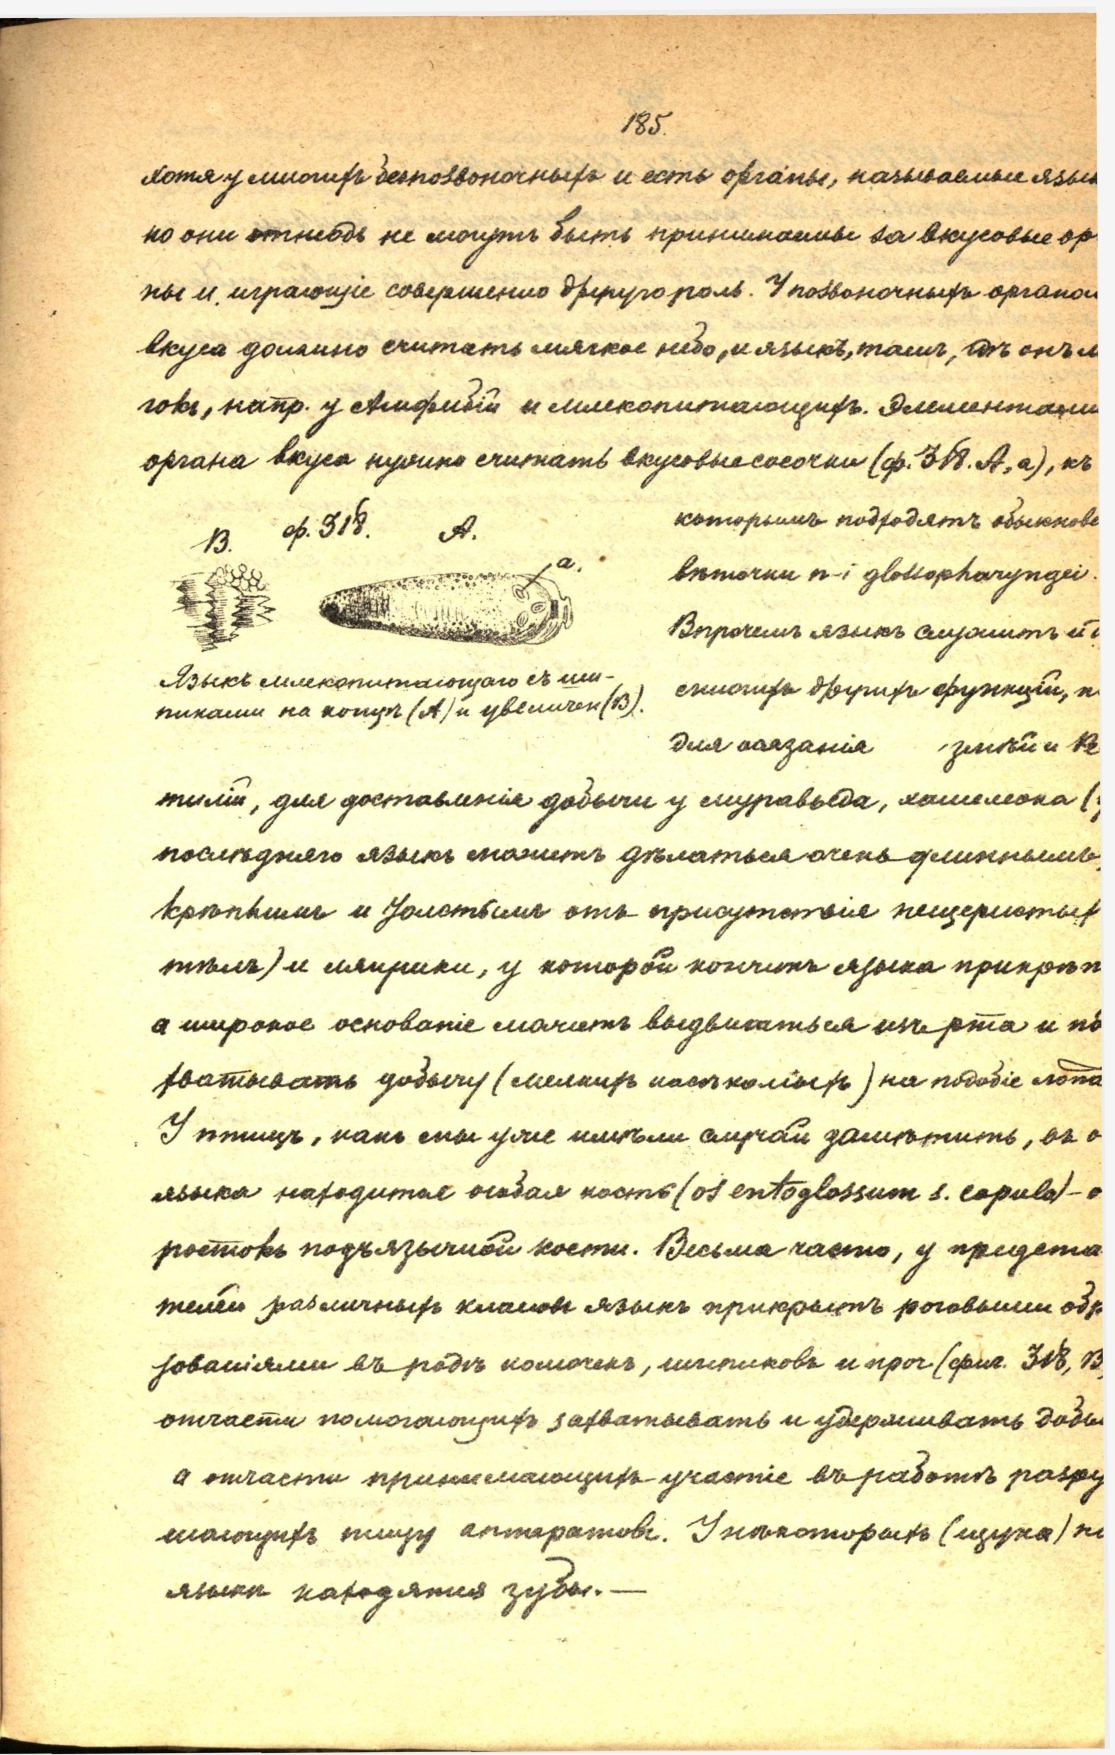 185.
хотя у многихъ безпозвоночныхъ и есть органы, называемые язык
но они отнюдь не могутъ быть принимаемы за вкусовые ор
ны и играющіе совершенно другую роль. У позвоночныхъ органом
вкуса должно считать мягкое небо, и языкъ, тамъ, гдѣ онъ м
гокъ, напр. у Амфибій и млекопитающихъ. Элементами
органа вкуса нужно считать вкусовые сосочки (ф. 318. А, а), къ
которымъ подходятъ обыкнове
вѣточки n-i glossopharyngei.
Впрочемъ языкъ служитъ и д
многихъ другихъ функцій, н
для осязанія змѣй и Re
В. ф. 318. А.
а.
Языкъ млекопитающаго съ ши-
пиками на концѣ (А) и увеличен (В).
тилій, для доставленія добычи у муравьѣда, хамелеона (у
послѣдняго языкъ можетъ дѣлаться очень длиннымъ,
крѣпкимъ и толстымъ отъ присутствія пещеристых
тѣлъ) и лягушки, у которой кончикъ языка прикрѣп
а широкое основаніе можетъ выдвигаться изъ рта и по
хватывать добычу (мелкихъ насѣкомыхъ) на подобіе лопа
У птицъ, какъ мы уже имѣли случай замѣтить, въ о
языка находится особая кость (os entoglossum s. copula) - о
ростокъ подъязычной кости. Весьма часто, у предста
телей различныхъ классовъ языкъ прикрытъ роговыми обр
зованіями въ родѣ колючекъ, шипиковъ и проч (фиг. 318, В
отчасти помогающихъ захватывать и удерживать добы
а отчасти принимающихъ участіе въ работѣ разру
шающихъ пищу аппаратовъ. У нѣкоторыхъ (щука) на
языкѣ находятся зубы. —